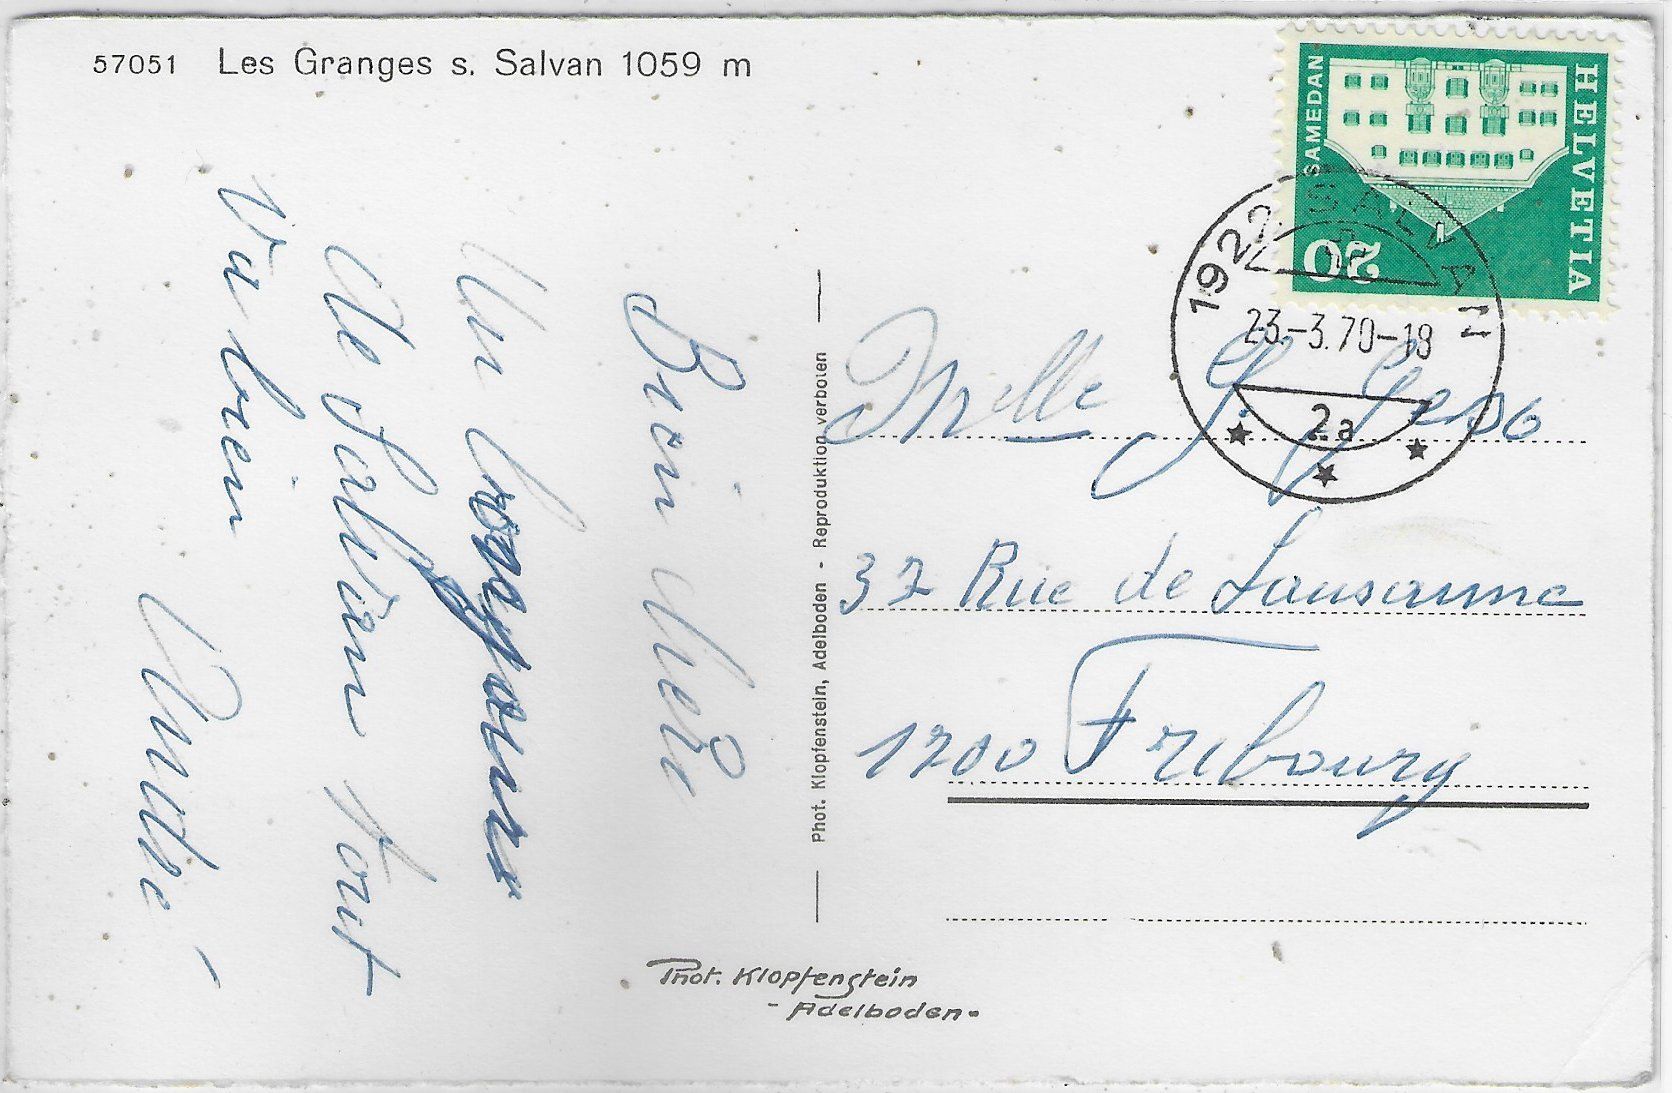 57051 Les Granges s. Salvan 1059 m
HELVETIA
SAMEDAN
20
1922 SALVAN
23.-3.70-18
2a
Mlle
32 Rue de Lausanne
1700 Fribourg
Un bonjour
de Salvan tout
va bien
Phot. Klopfenstein, Adelboden - Reproduktion verboten
Phot. Klopfenstein
- Adelboden -